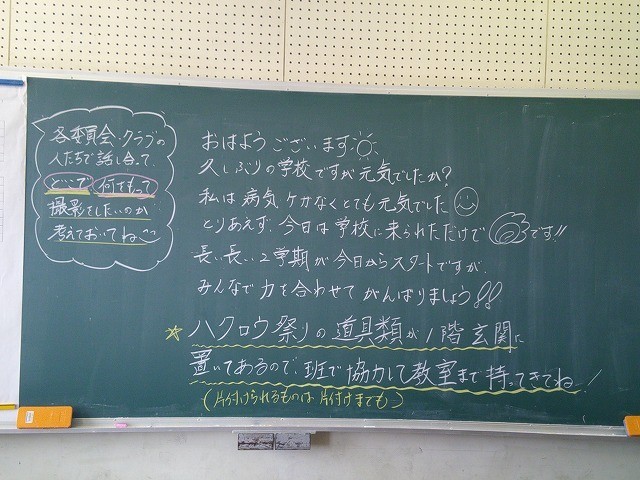 各委員会・クラブの
人たちで話し合って、
どこで 何をもって
撮影をしたいのか
考えておいてね
おはようございます
久しぶりの学校ですが元気でしたか?
私は病気ケガなくとても元気でした
とりあえず、今日は学校に来られただけで です!!
長い長い2学期が今日からスタートですが、
みんなで力を合わせてがんばりましょう!!
☆ハクロウ祭りの道具類が1階玄関に
置いてあるので、班で協力して教室まで持ってきてね!
(片付けられるものは片付けまでも)